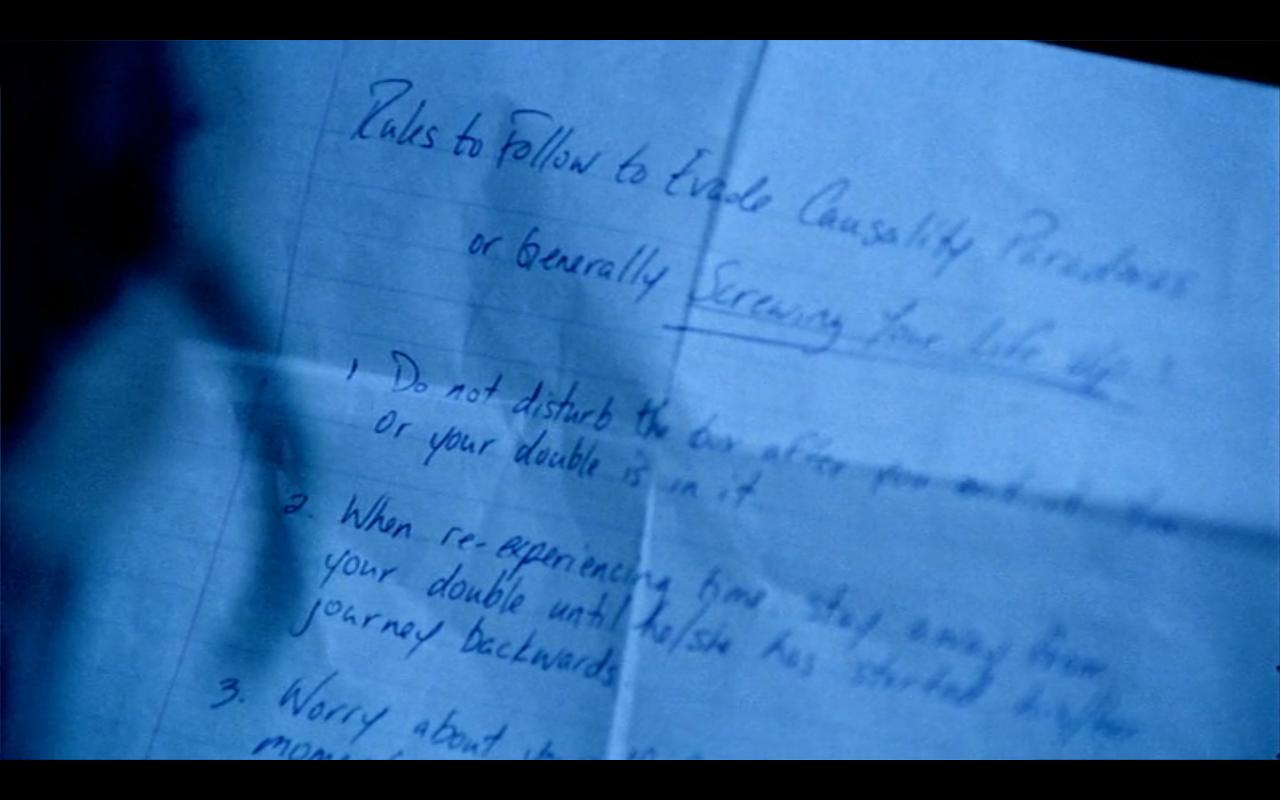 Rules to Follow to Evade Causality Paradoxes
or Generally Screwing Your Life Up!
1 Do not disturb the box after you
or your double is in it
2. When re-experiencing time stay away from
your double until he/she has started his/her
journey backwards
3. Worry about